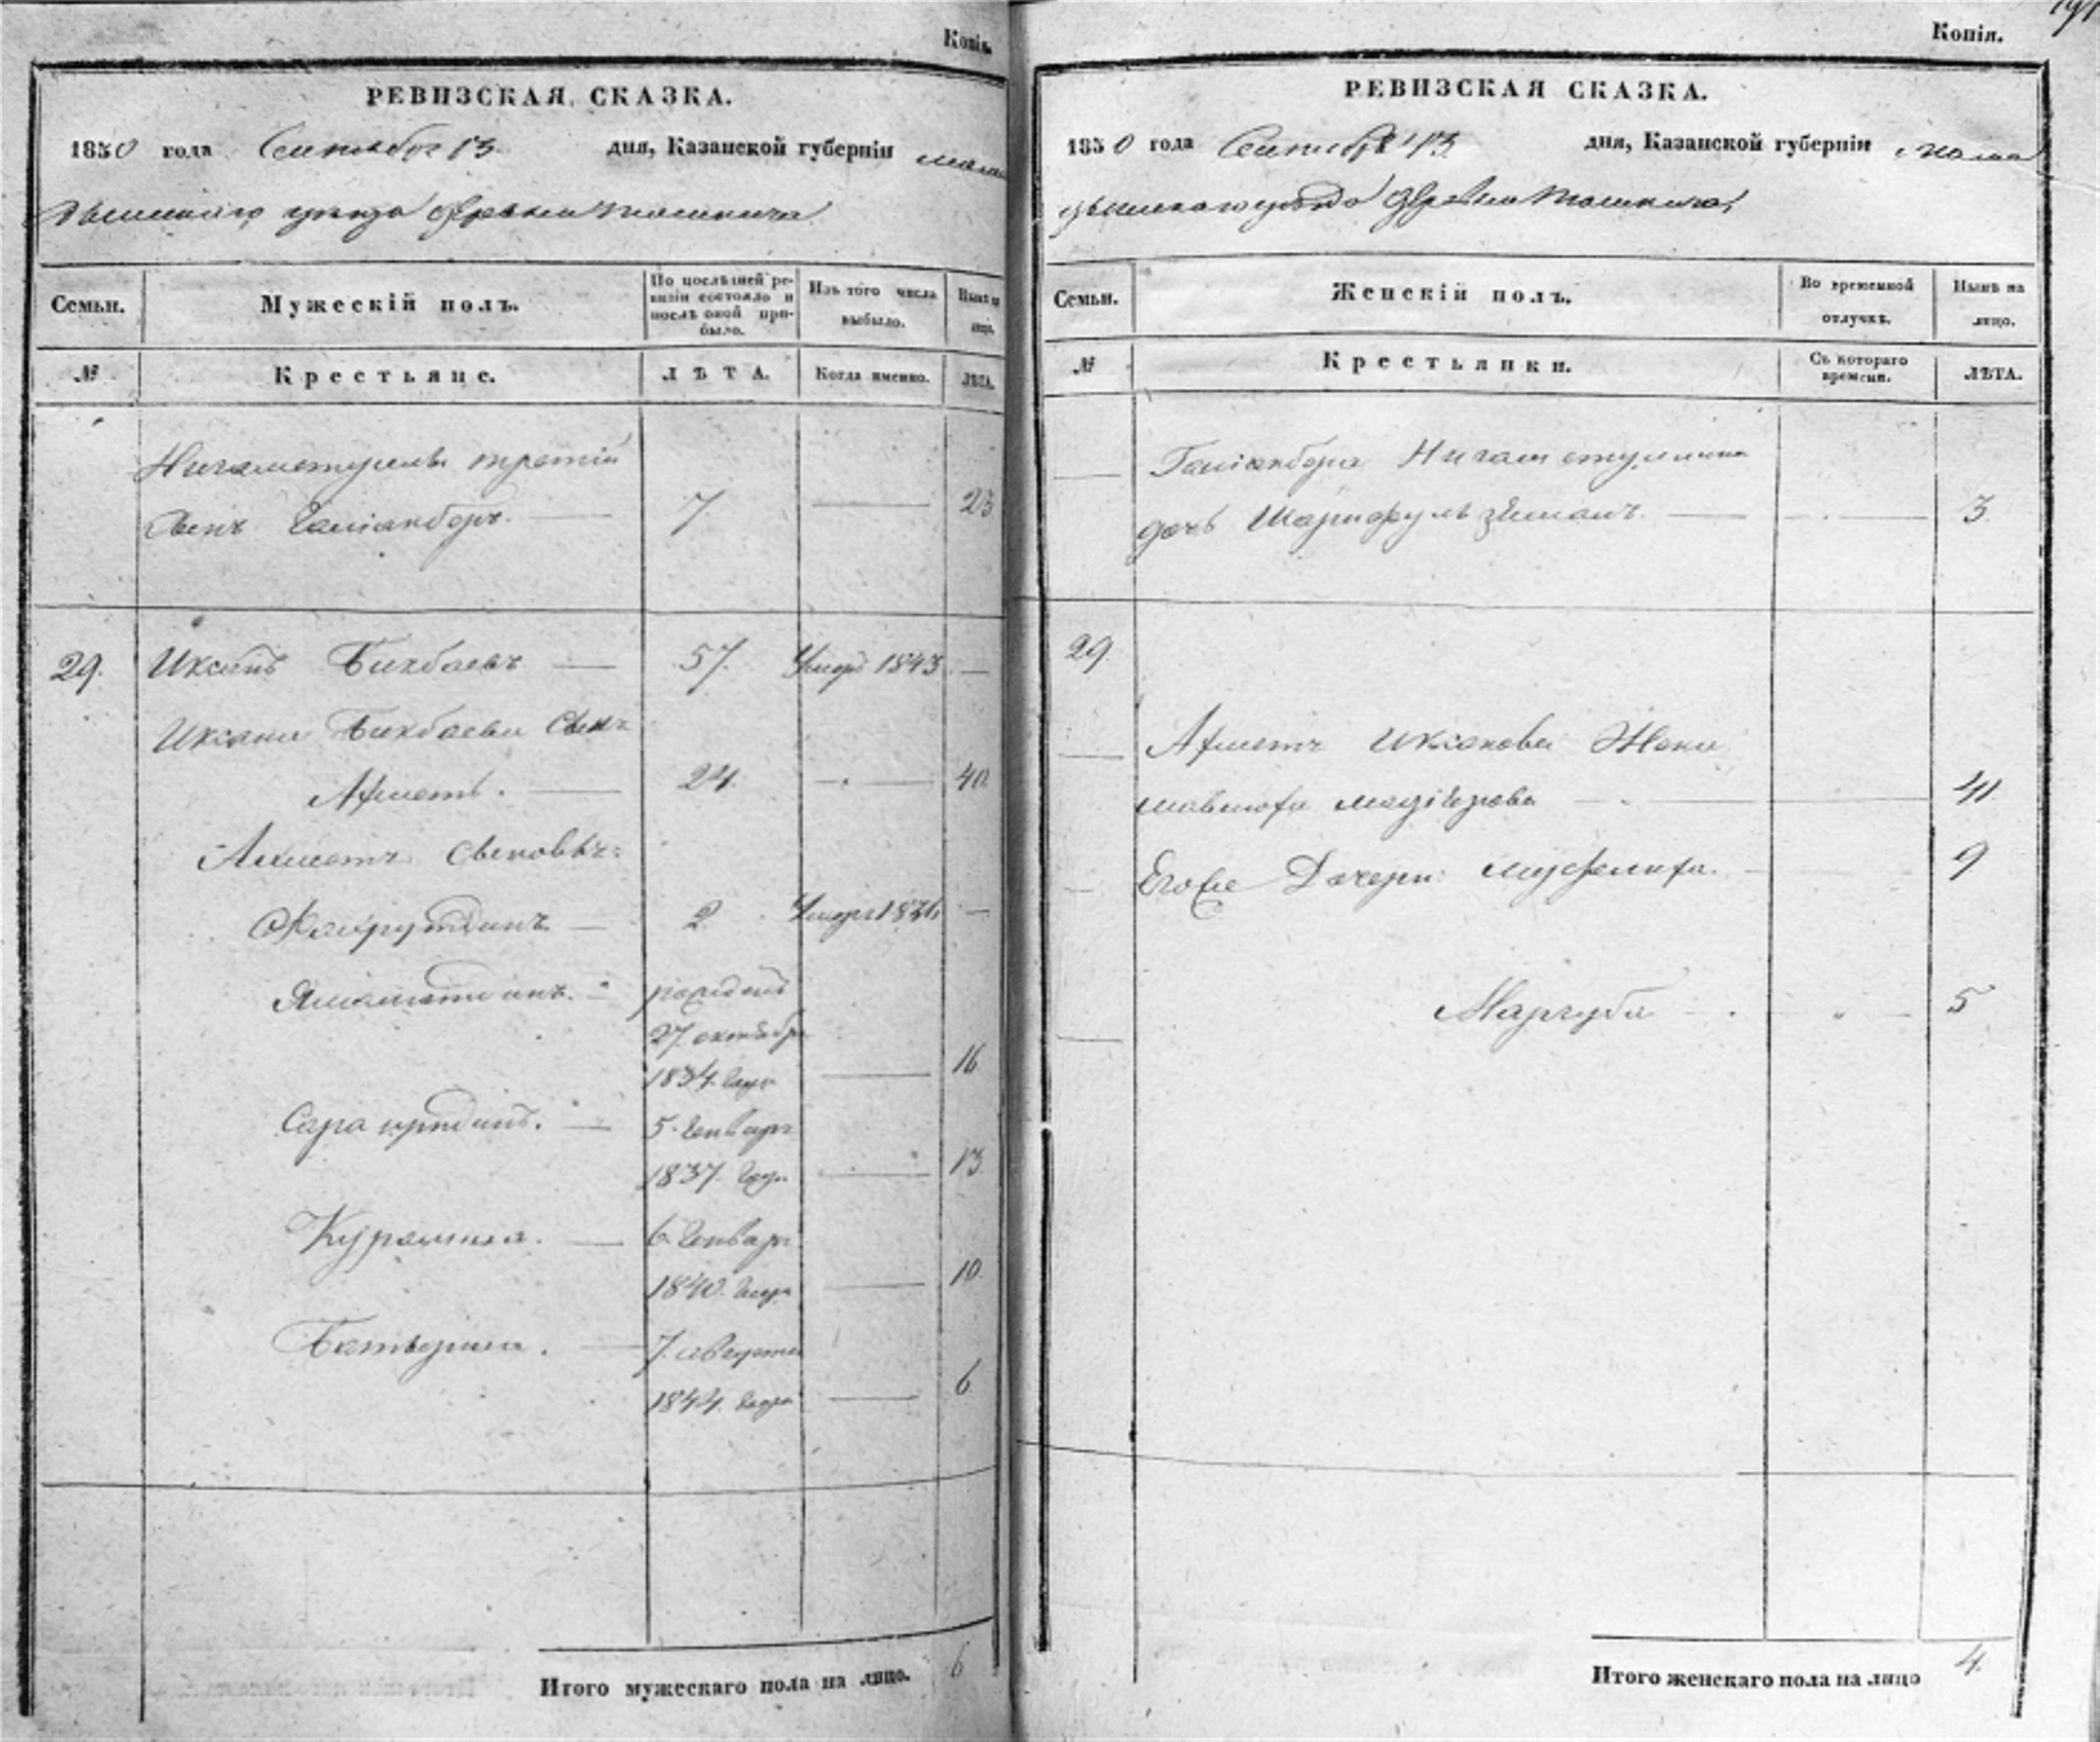 Копія.
РЕВИЗСКАЯ СКАЗКА.
1850 года Сентября 13 дня, Казанской губерніи мама
дышскаго уѣзда деревни
Семьи.
Мужескій полъ.
По послѣдней ре-
визіи состояло и
послѣ оной при-
было.
Изъ того числа
выбыло.
Нынѣ на
лицо.
№
Крестьяне.
ЛѢТА.
Когда именно.
ЛѢТА.
Нигаметуллы третій
сынъ Галіакберъ. 7 23
29. Иксанъ Бикбаевъ 57. Умеръ 1843
Иксана Бикбаева сынъ
Ахметъ. 24. 40.
Ахметъ сыновья:
Фахрутдинъ 2
Ямалетдинъ. рожденъ
27 октября
1834. года 16
5. Генваря
1837. года 13
Курамша. 6 Генваря
1840. года 10.
7. августа
1844. года 6
Итого мужескаго пола на лицо. 6
Копія.
РЕВИЗСКАЯ СКАЗКА.
1850 года Сентября 13 дня, Казанской губерніи мама
дышскаго уѣзда деревни
Семьи.
Женскій полъ.
Во временной
отлучкѣ.
Нынѣ на
лицо.
№
Крестьянки.
Съ котораго
времени.
ЛѢТА.
Галіакбера Нигаметуллина
дочь 3
29.
Ахметъ Иксанова Жена
41.
Его Дочери: 9
Маргуба 5
Итого женскаго пола на лицо 4.